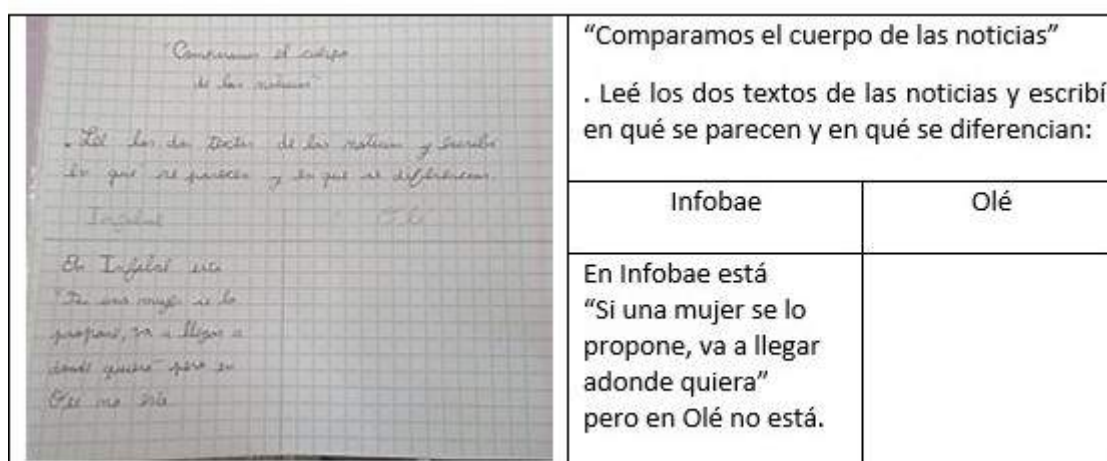 "Comparamos el cuerpo
de las noticias"
. Leé los dos textos de las noticias y escribí
en qué se parecen y en qué se diferencian.
Infobae Olé
En Infobae está
"Si una mujer se lo
propone, va a llegar a
donde quiera" pero en
Olé no está
"Comparamos el cuerpo de las noticias"
. Leé los dos textos de las noticias y escribí
en qué se parecen y en qué se diferencian:
Infobae Olé
En Infobae está
"Si una mujer se lo
propone, va a llegar
adonde quiera"
pero en Olé no está.